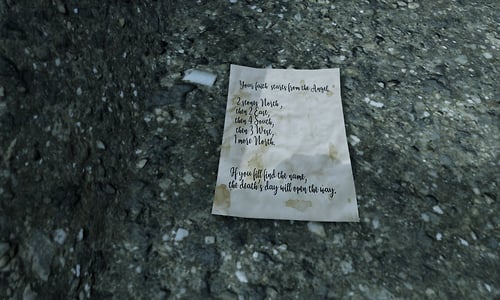 Your faith starts from the Angel
2 stones North,
then 2 East,
then 4 South,
then 3 West,
1 more North.
If you fill find the name,
the death's day will open the way.